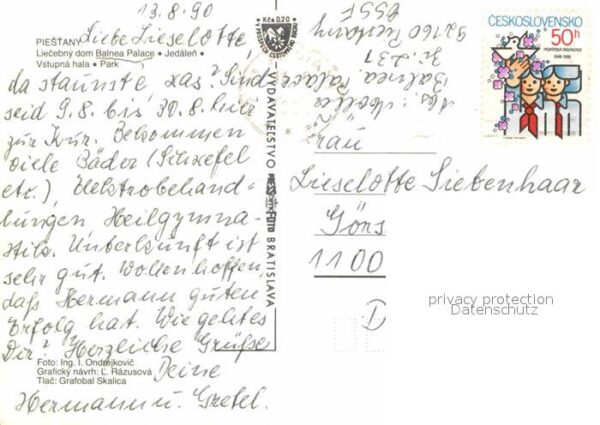 13.8.90
PIEŠŤANY
Liečebný dom Balnea Palace • Jedáleň
Vstupná hala • Park
Liebe Lieselotte,
da staunste, was? Sind
seid 9.8. bis 30.8. hier
zur Kur. Bekommen
viele Bäder (Schwefel
etc.), Elektrobehand-
lungen Heilgymna-
stik. Unterkunft ist
sehr gut. Wollen hoffen,
daß Hermann guten
Erfolg hat. Wie geht es
Dir? Herzliche Grüße
Deine
Hermann u. Gretel.
Foto: Ing. I. Ondrejkovič
Grafický návrh: Ľ. Rázusová
Tlač: Grafobal Skalica
Kčs 0,20
VYDAVATEĽSTVO
BRATISLAVA
ČSSR
Balnea
Zi. 231
ČESKOSLOVENSKO
50h
PIONÝRSKÁ ORGANIZACE
1949-1989
rau
Lieselotte Siebenhaar
Görs
1100
D
privacy protection
Datenschutz